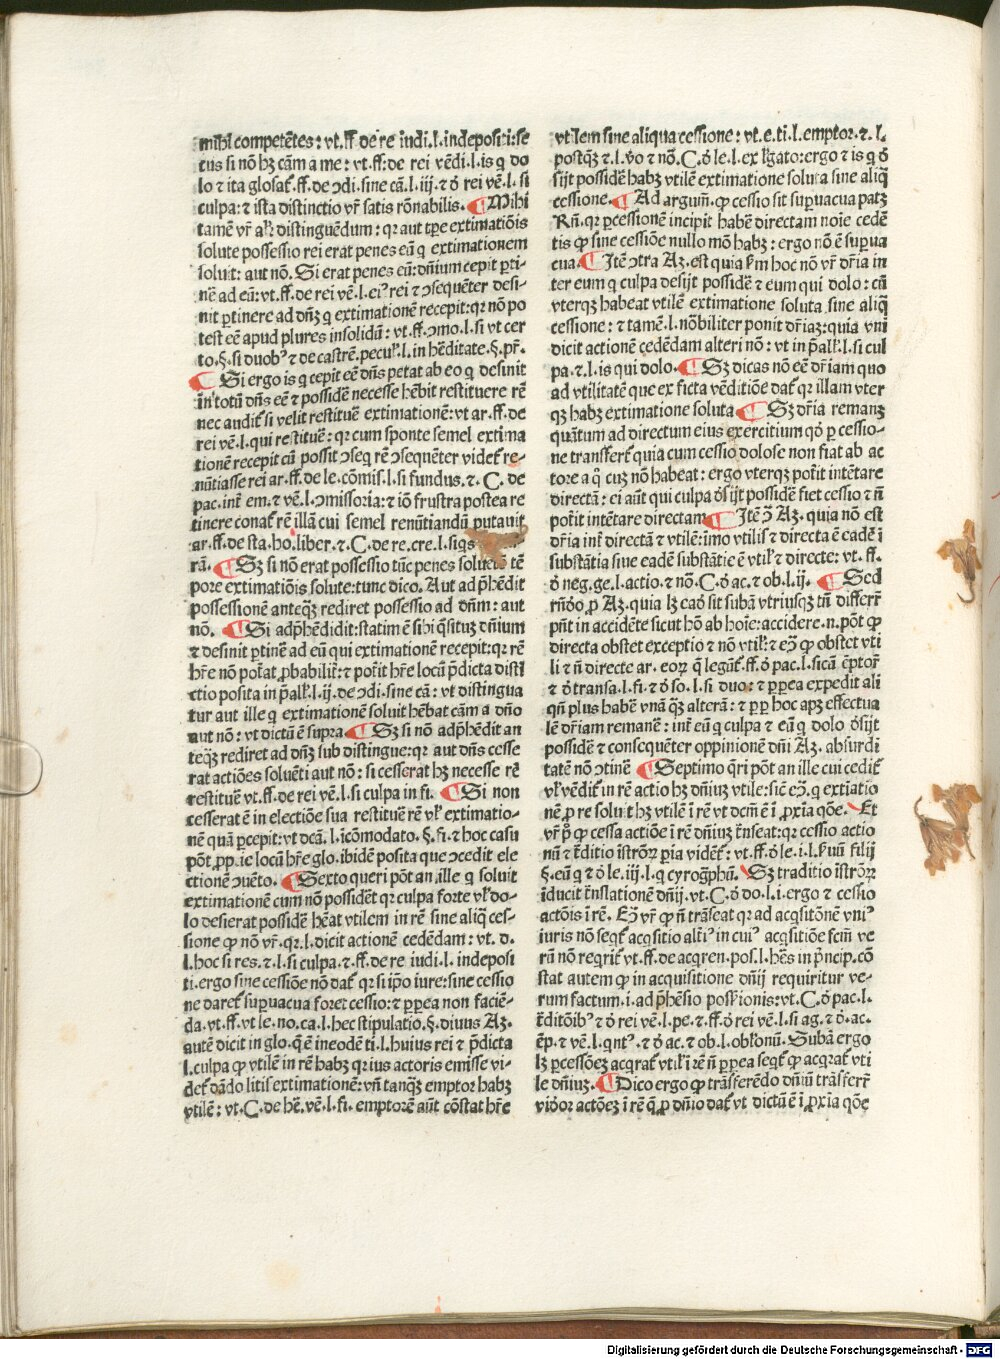 mihi competētes: vt. ff. de re iudi. l. indepositi: se
cus si nō hꝫ cām a me: vt. ff: de rei vēdi. l. is q do
lo ⁊ ita glosat̄. ff. de ↄdi. sine cā. l. iij. ⁊ ꝺ̓ rei vē. l. si
culpa: ⁊ ista distinctio vr̄ satis rōnabilis. ¶ Mihi
tamē vr̄ alr̄ distinguēdum: qꝛ aut tꝑe extimatiōis
solute possessio rei erat penes eū q extimationem
soluit: aut nō. Si erat penes eū: dn̄ium cepit ꝑti-
nē ad eū: vt. ff. de rei vē. l. eiꝰ rei ⁊ ↄsequēter desi-
nit ꝑtinere ad dn̄ꝫ q extimationē recepit: qꝛ nō po
test eē apud plures insolidū: vt. ff. ↄmo. l. si vt cer
to. §. si duobꝰ ⁊ de castrē. pecul̓. l. in hēditate. §. pr̄.
¶ Si ergo is q cepit eē dn̄s petat ab eo q desinit
in totū dn̄s eē ⁊ possidē necesse hēbit restituere rē
nec audit̄ si velit restituē extimationē: vt ar. ff. de
rei vē. l. qui restituē: qꝛ cum sponte semel extima
tionē recepit cū possit ↄseq rē ↄsequēter videt̄ re-
nūtiasse rei ar. ff. de le. cōmis. l. si fundus. ⁊. C. de
pac. int̄ em. ⁊ vē. l. ↄmissoria: ⁊ iō frustra postea re
tinere conat̄ rē illā cui semel renūtiandū putauit
ar. ff. de sta. ho. liber. ⁊. C. de re. cre. l. siqs
rā. ¶ Sꝫ si nō erat possessio tūc penes soluētē tē
pore extimatiōis solute: tunc dico. Aut ad p̄hēdit
possessionē anteqꝫ rediret possessio ad dn̄m: aut
nō. ¶ Si adp̄hēdidit: statim ē sibi q̄situꝫ dn̄ium
⁊ desinit ꝑtinē ad eū qui extimationē recepit: qꝛ rē
hr̄e nō potat̄ ꝓbabilit̄: ⁊ pot̄it hr̄e locū p̄dicta disti
ctio posita in p̄all̓. l. ij. de ↄdi. sine cā: vt distingua
tur aut ille q extimationē soluit hēbat cām a dn̄o
aut nō: vt dictū ē supra. ¶ Sꝫ si nō adp̄hēdit an
teqꝫ rediret ad dn̄ꝫ sub distingue: qꝛ aut dn̄s cesse
rat actiōes soluēti aut nō: si cesserat hꝫ necesse rē
restituē vt. ff. de rei vē. l. si culpa in fi. ¶ Si non
cesserat ē in electiōe sua restituē rē vl̓ extimatio-
nē quā ꝑcepit: vt dcā. l. icōmodato. §. fi. ⁊ hoc casu
pōt ꝓp̄ie locū hr̄e glo. ibidē posita que ↄcedit ele
ctionē ↄuēto. ¶ Sexto queri pōt an ille q soluit
extimationē cum nō possidēt qꝛ culpa forte vl̓ do-
lo desierat possidē hēat vtilem in rē sine aliq̄ ces-
sione ꝙ nō vr̄. qꝛ. l. dicit actionē cedēdam: vt. d.
l. hoc si res. ⁊. l. si culpa. ⁊. ff. de re iudi. l. indeposi
ti. ergo sine cessiōe nō dat̄ qꝛ si ip̄o iure: sine cessio
ne daret̄ suꝑuacua foret cessio: ⁊ ꝑꝑea non faciē-
da. vt. ff. vt le. no. ca. l. hec stipulatio. §. diuus Aꝫ.
autē dicit in glo. q̄ ē ineodē ti. l. huius rei ⁊ p̄dicta
l. culpa ꝙ vtilē in rē habꝫ qꝛ ius actoris emisse vi-
det̄ dādo litis extimationē: vn̄ tanqꝫ emptor habꝫ
vtilē: vt. C. de hē. vē. l. fi. emptorē aūt cōstat hr̄e
vtilem sine aliqua cessione: vt. e. ti. l. emptor. ⁊. l.
postqꝫ ⁊. l. v̓o ⁊ nō. C. ꝺ̓ le. l. ex lgato: ergo ⁊ is q ꝺ̓
sijt possidē habꝫ vtilē extimatione soluta sine aliq̄
cessione. ¶ Ad argum̄. ꝙ cessio sit suꝑuacua patꝫ
Rn̄. qꝛ ꝑcessionē incipit habē directam noīe cedē
tis ꝙ sine cessiōe nullo mō habꝫ: ergo nō ē suꝑua
cua. ¶ Itē ↄtra Aꝫ. est quia ẜm hoc nō vr̄ dr̄ia in
ter eum q culpa desijt possidē ⁊ eum qui dolo: cū
vterqꝫ habeat vtilē extimatione soluta sine aliq̄
cessione: ⁊ tamē. l. nōbiliter ponit dr̄iaꝫ: quia vni
dicit actionē cedēdam alteri nō: vt in p̄all̓. l. si cul
pa. ⁊. l. is qui dolo. ¶ Sꝫ dicas nō eē dr̄iam quo
ad vtilitatē que ex ficta vēditiōe dat̄ qꝛ illam vter
qꝫ habꝫ extimatione soluta ¶ Sꝫ dr̄ia remanꝫ
quātum ad directum eius exercitium qꝺ̓ ꝑ cessio-
ne transfert̄ quia cum cessio dolose non fiat ab ac
tore a q̄ cuꝫ nō habeat: ergo vterqꝫ pot̄it intētare
directā: ei aūt qui culpa ꝺ̓sijt possidē fiet cessio ⁊ n̄
pot̄it intētare directam ¶ Itē ↄ̄ Aꝫ. quia nō est
dr̄ia int̄ directā ⁊ vtilē: imo vtilis ⁊ directa ē cadē ī
substātia siue eadē substātie ē vtil̓ ⁊ directe: vt. ff.
ꝺ̓ neg. ge. l. actio. ⁊ nō. C. ꝺ̓ ac. ⁊ ob. l. ij. ¶ Sed
rn̄ꝺ̓o ꝓ Aꝫ. quia lꝫ eaꝺ̓ sit subā vtriusqꝫ tn̄ differr̄
pn̄t in accidēte sicut hō ab hoīe: accidere. n. pōt ꝙ
directa obstet exceptio ⁊ nō vtil̓: ⁊ eↄ̄ ꝙ obstet vti
li ⁊ n̄ directe ar. eoꝝ q̄ legūt̄. ff. ꝺ̓ pac. l. sicā ēptor̄
⁊ ꝺ̓ transa. l. fi. ⁊ ꝺ̓ so. l. si duo: ⁊ ꝑꝑea expedit ali
qn̄ plus habē vnā qꝫ alterā: ⁊ ꝑꝑ hoc apꝫ effectua
lē dr̄iam remanē: int̄ eū q culpa ⁊ eū q dolo ꝺ̓sijt
possidē ⁊ consequēter oppinionē dn̄i Aꝫ. absurdi
tatē nō ↄtinē ¶ Septimo q̄ri pōt an ille cui cedit̄
vl̓ vēdit̄ in rē actio hꝫ dn̄iuꝫ vtile: sic ē eↄ̄. q extiatio
nē ꝓ re soluit hꝫ vtilē ī rē vt dcm̄ ē ī ꝓxīa qōe. Et
vr̄ p̄ ꝙ cessa actiōe ī rē dn̄iuꝫ t̄nseat: qꝛ cessio actio
nū ⁊ t̄ditio īstrōꝝ ꝑia vidēt̄: vt. ff. ꝺ̓ le. i. l. ẜuū filij
§. eū q ⁊ ꝺ̓ le. iij. l. q cyrogp̄hū. Sꝫ traditio īstrōꝝ
īducit t̄nslationē dn̄ij. vt. C. ꝺ̓ do. l. i. ergo ⁊ cessio
actōis ī rē. Eↄ̄ vr̄ ꝙ n̄ trāseat qꝛ ad acq̄sitōnē vniꝰ
iuris nō seqt̄ acq̄sitio alt̄iꝰ in cuiꝰ acq̄sitiōe fcm̄ ve
rū nō reqrit̄ vt. ff. de acq̄ren. pos. l. hēs in p̄ncip. cō
stat autem ꝙ in acquisitione dn̄ij requiritur ve-
rum factum. i. ad p̄hēsio possʼionis: vt. C. ꝺ̓ pac. l.
t̄ditōibꝰ ⁊ ꝺ̓ rei vē. l. pe. ⁊. ff. ꝺ̓ rei vē. l. si ag. ⁊ ꝺ̓. ac.
ēp. ⁊ vē. l. qn̄tꝰ. ⁊ ꝺ̓ ac. ⁊ ob. l. obl̓onū. Subā ergo
lꝫ ꝑcessōeꝫ acq̄rat̄ vtil̓ ī rē n̄ ꝑꝑea seqt̄ ꝙ acq̄rat̄ vti
le dn̄iuꝫ. ¶ Dico ergo ꝙ trāsferēdo dn̄iū trāsferr̄
viꝺ̓or actōeꝫ ī rē q̄ ꝓ dn̄io dat̄ vt dictū ē ī ꝓxīa qōe
Digitalisierung gefördert durch die Deutsche Forschungsgemeinschaft - DFG